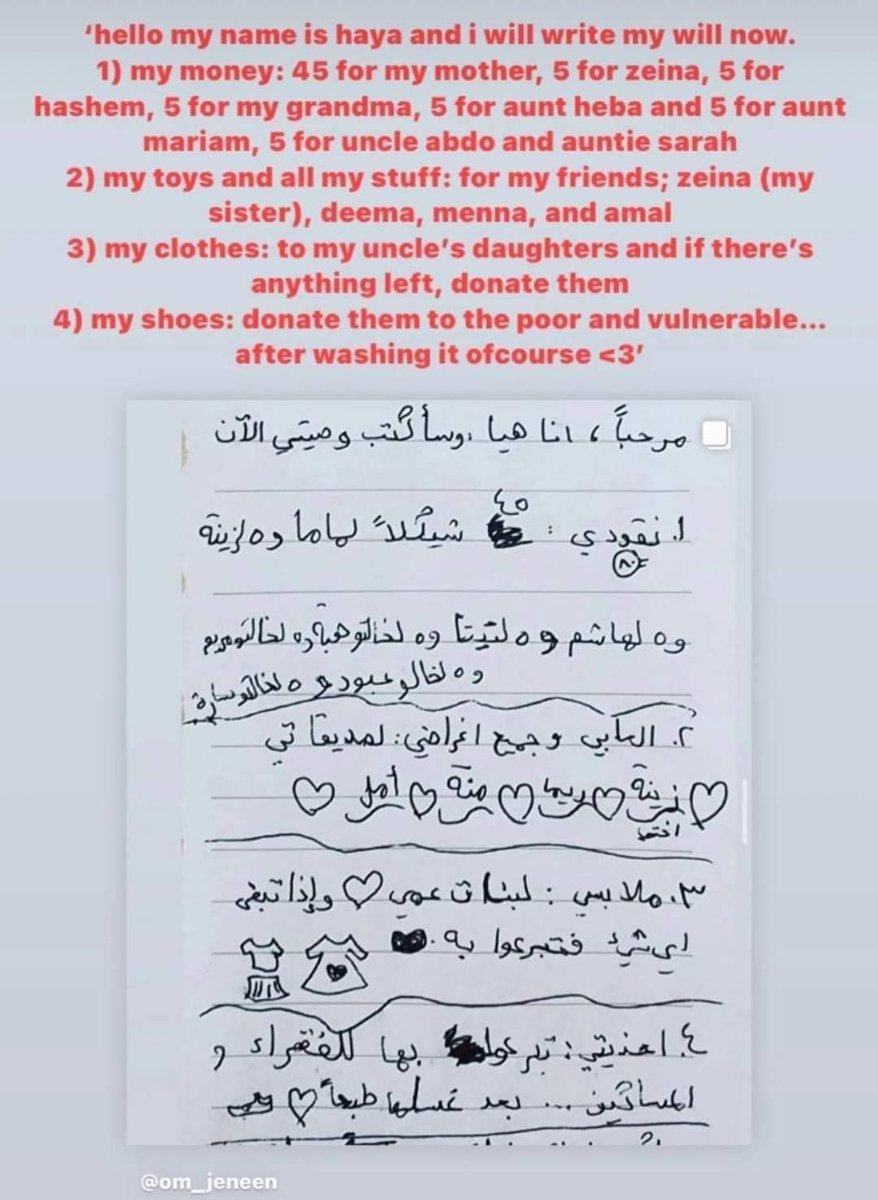 ‘hello my name is haya and i will write my will now.
1) my money: 45 for my mother, 5 for zeina, 5 for
hashem, 5 for my grandma, 5 for aunt heba and 5 for aunt
mariam, 5 for uncle abdo and auntie sarah
2) my toys and all my stuff: for my friends; zeina (my
sister), deema, menna, and amal
3) my clothes: to my uncle’s daughters and if there’s
anything left, donate them
4) my shoes: donate them to the poor and vulnerable...
after washing it ofcourse <3’
مرحباً، انا هيا، وسأكتب وصيتي الآن
٤٥
١. نقودي : شيكلاً لماما و٥ لزينة
٨٠
و٥ لهاشم و٥ لتيتا و٥ لخالتو هبة و٥ لخالتو مريم
و٥ لخالو عبود و٥ لخالتو سارة
٢. العابي وجميع اغراضي: لصديقاتي
زينة ريما منة أمل
اختي
٣. ملابسي : لبنات عمي وإذا تبقى
اي شيء فتبرعوا به.
٤. احذيتي: تبرعوا بها للفقراء و
المساكين ... بعد غسلها طبعاً
@om_jeneen